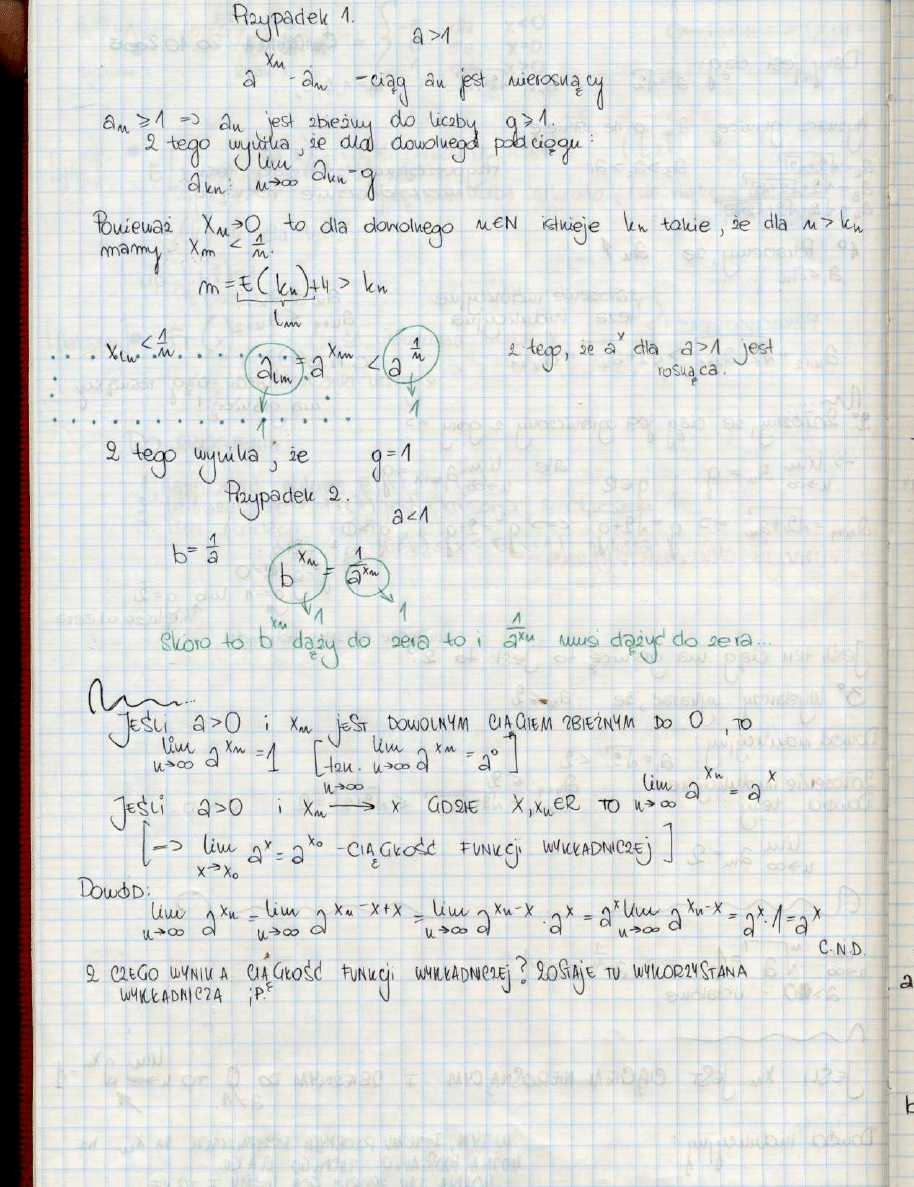 Przypadek 1.
a>1
a^{x_n} - a_n - ciąg a_n jest nierosnący
a_n ≥ 1 => a_n jest zbieżny do liczby g ≥ 1.
Z tego wynika, że dla dowolnego podciągu:
a_{k_n}: lim_{n→∞} a_{k_n} = g
Ponieważ x_n→0, to dla dowolnego n∈N istnieje k_n takie, że dla m > k_n
mamy x_m < 1/n.
m = E(k_n)+1 > k_n
l_n
x_{l_n} < 1/n a_{l_n} = a^{x_m} < a^{1/n} Z tego, że a^x dla a>1 jest
rosnąca.
1 1
Z tego wynika; że g=1
Przypadek 2.
a<1
b = 1/a b^{x_n} = 1/a^{x_n}
1 1
Skoro to b^{x_n} dąży do zera to i 1/a^{x_n} musi dążyć do zera...
JEŚLI a>0 i x_n JEST DOWOLNYM CIĄGIEM ZBIEŻNYM DO 0, TO
lim_{n→∞} a^{x_n} = 1 [tzn. lim_{n→∞} a^{x_n} = a^0]
JEŚLI a>0 i x_n →_{n→∞} x GDZIE X, x_n∈R TO lim_{n→∞} a^{x_n} = a^x
[=> lim_{x→x_0} a^x = a^{x_0} - CIĄGŁOŚĆ FUNKCJI WYKŁADNICZEJ]
DOWÓD:
lim_{n→∞} a^{x_n} = lim_{n→∞} a^{x_n-x+x} = lim_{n→∞} a^{x_n-x} · a^x = a^x lim_{n→∞} a^{x_n-x} = a^x · 1 = a^x
C.N.D.
Z CZEGO WYNIKA CIĄGŁOŚĆ FUNKCJI WYKŁADNICZEJ? ZOSTAJE TU WYKORZYSTANA
WYKŁADNICZA ;P.
a
b